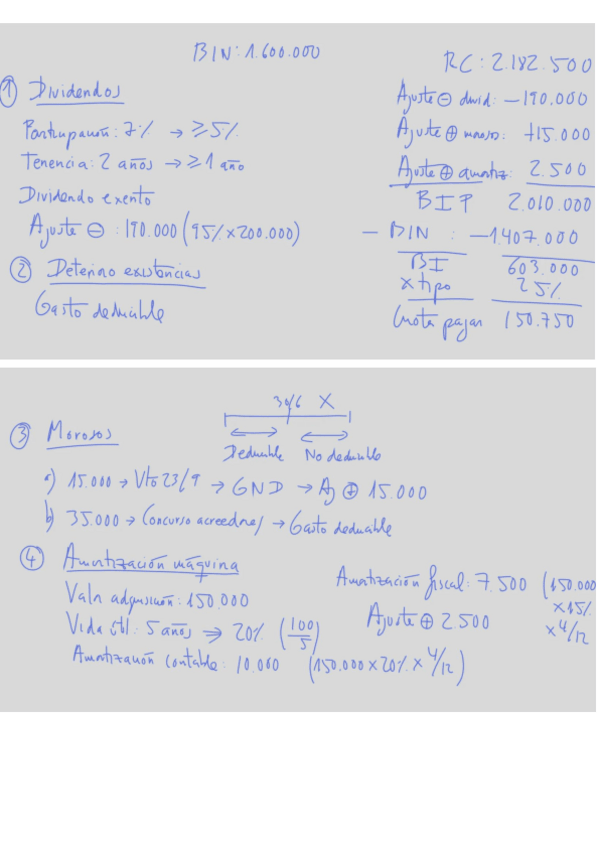 BIN: 1.600.000
① Dividendos
Participación: 7% → ≥5%
Tenencia: 2 años → ≥1 año
Dividendo exento
Ajuste ⊖ : 190.000 (95% × 200.000)
② Deterioro existencias
Gasto deducible
RC: 2.182.500
Ajuste ⊖ divid: -190.000
Ajuste ⊕ moroso: +15.000
Ajuste ⊕ amortiz: 2.500
BIP 2.010.000
- BIN : -1.407.000
BI 603.000
× tipo 25%
Cuota pagar 150.750
③ Morosos
30/6 X
Deducible No deducible
a) 15.000 → Vto 23/9 → GND → Aj ⊕ 15.000
b) 35.000 → Concurso acreedores → Gasto deducible
④ Amortización máquina
Valor adquisición: 150.000
Vida útil: 5 años ⇒ 20% (100/5)
Amortización contable: 10.000 (150.000 × 20% × 4/12)
Amortización fiscal: 7.500 (150.000
×15%
Ajuste ⊕ 2.500
×4/12